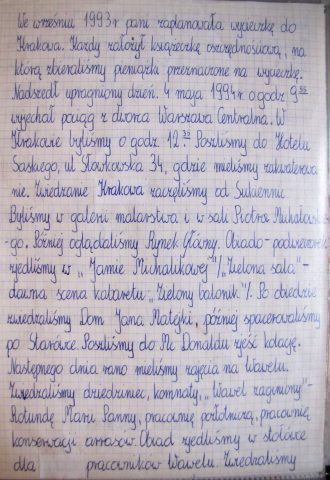 We wrześniu 1993 r pani zaplanowała wycieczkę do
Krakowa. Każdy założył książeczkę oszczędnościową, na
którą zbieraliśmy pieniążki przeznaczone na wycieczkę.
Nadszedł upragniony dzień. 4 maja 1994r. o godz 9⁵⁵
wyjechał pociąg z dworca Warszawa Centralna. W
Krakowie byliśmy o godz. 12³⁰ Poszliśmy do Hotelu
Saskiego, ul Sławkowska 34, gdzie mieliśmy zakwaterowa
nie. Zwiedzanie Krakowa zaczęliśmy od Sukiennic
Byliśmy w galerii malarstwa i w sali Piotra Michałows-
-go. Później oglądaliśmy Rynek Główny. Obiado-podwieczorek
zjedliśmy w „Jamie Michalikowej"/„Zielona sala"-
dawna scena kabaretu „Zielony balonik"/. Po obiedzie
zwiedzaliśmy Dom Jana Matejki, później spacerowaliśmy
po Starówce. Poszliśmy do Mc Donaldu zjeść kolację.
Następnego dnia rano mieliśmy zajęcia na Wawelu.
Zwiedzaliśmy dziedziniec, komnaty, „Wawel zaginiony"-
Rotundę Marii Panny, pracownię portolniczą, pracownię
konserwacji arrasów. Obiad zjedliśmy w stołówce
dla pracowników Wawelu. Zwiedzaliśmy